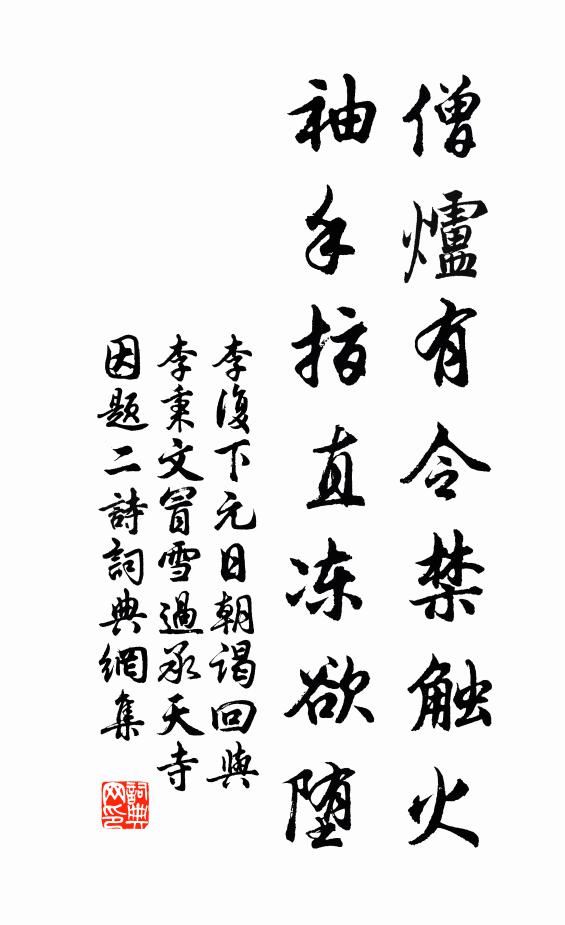 僧爐有令禁触火
袖手指直冻欲堕
李復下元日朝谒回與
李秉文冒雪過承天寺
因题二詩詞典網集
詞典
网印